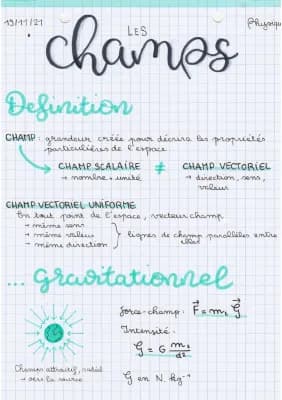 19/11/21
Physique
LES
champs
Definition
CHAMP : grandeur créée pour décrire les propriétés
particulières de l'espace
CHAMP SCALAIRE ≠ CHAMP VECTORIEL
→ nombre + unité → direction, sens,
valeur
CHAMP VECTORIEL UNIFORME
En tout point de l'espace, vecteur champ
→ même sens
→ même valeur } lignes de champ parallèles entre
→ même direction elles
... gravitationnel
force-champ : F⃗ = m₁ G⃗
Intensité :
G = G m₂/d²
Champs attractif, radial
→ vers la source
G en N.kg⁻¹